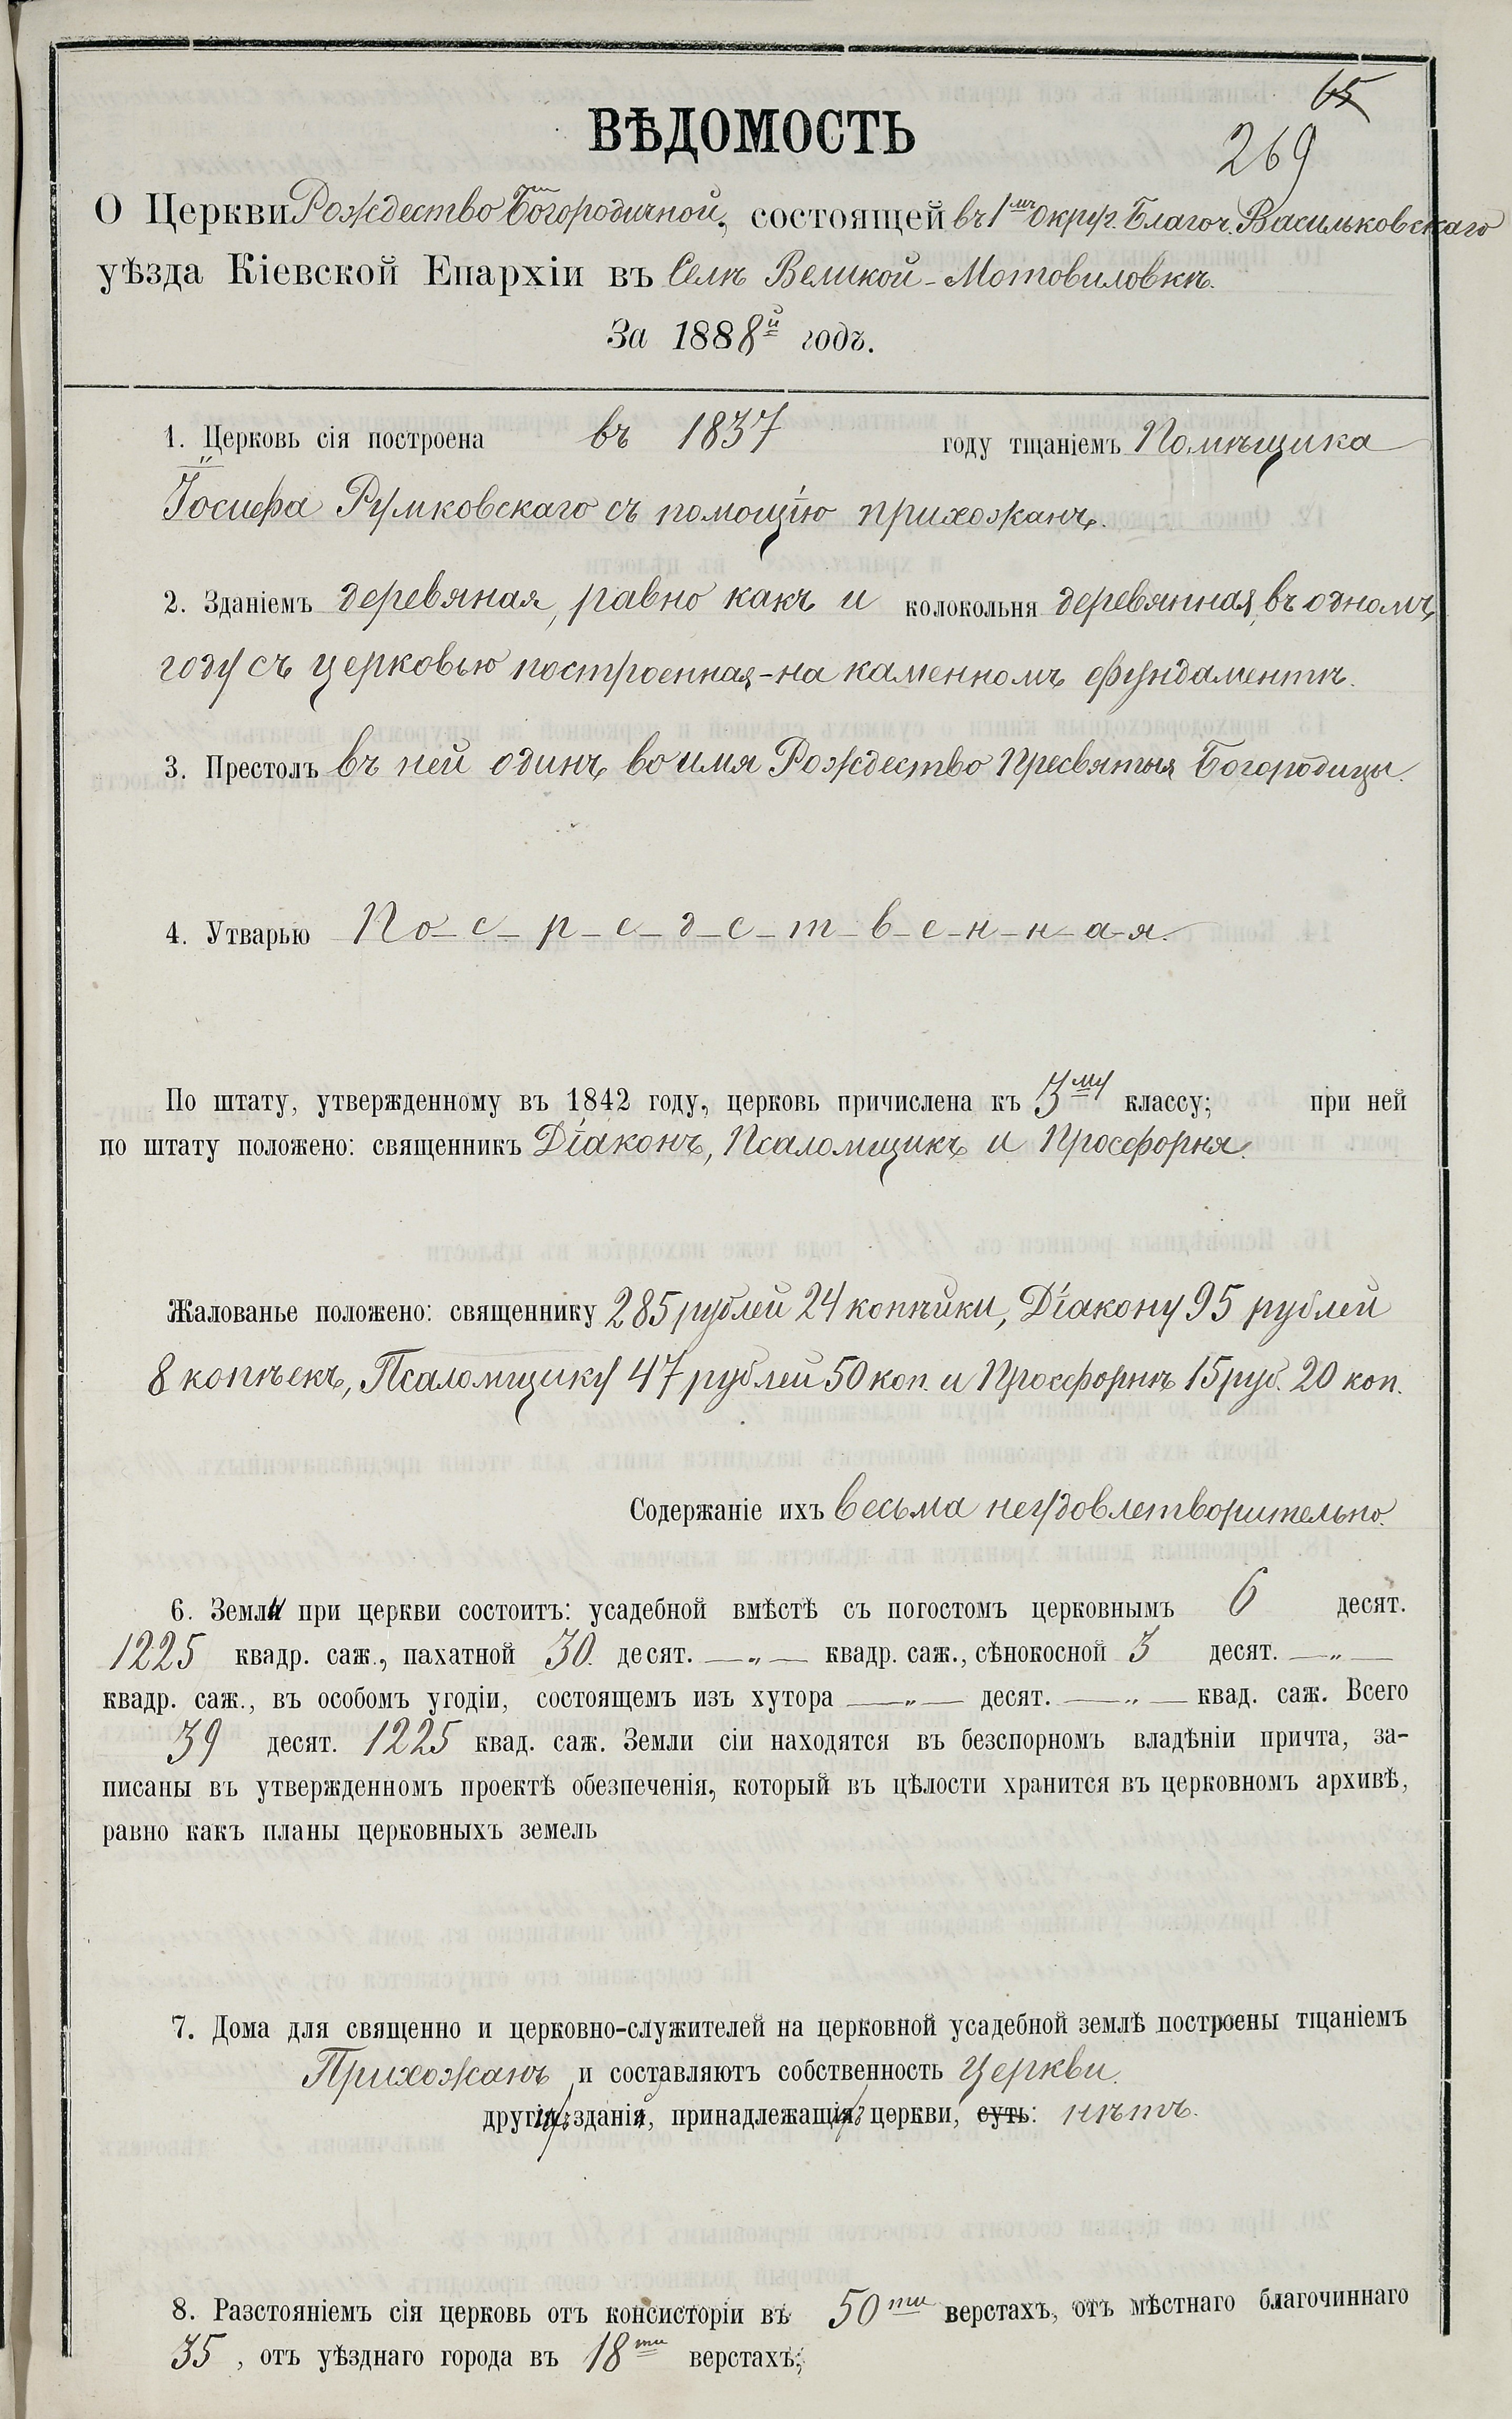 65
269
ВѢДОМОСТЬ
О Церкви Рождество Богородичной, состоящей въ 1мъ округ. Благоч. Васильковскаго
уѣзда Кіевской Епархіи въ Селѣ Великой-Мотовиловкѣ.
За 1888й годъ.
1. Церковь сія построена въ 1837 году тщаніемъ Помѣщика
Іосифа Румковскаго съ помощію прихожанъ.
2. Зданіемъ деревяная, равно какъ и колокольня деревянная, въ одномъ
году съ церковью построенная-на каменномъ фундаментѣ.
3. Престолъ въ ней одинъ, во имя Рождество Пресвятыя Богородицы.
4. Утварью По-с-р-е-д-с-т-в-е-н-н-а-я.
По штату, утвержденному въ 1842 году, церковь причислена къ 3му классу; при ней
по штату положено: священникъ Діаконъ, Псаломщикъ и Просфорня.
Жалованье положено: священнику 285 рублей 24 копѣйки, Діакону 95 рублей
8 копѣекъ, Псаломщику 47 рублей 50 коп. и Просфорнѣ 15 руб. 20 коп.
Содержаніе ихъ весьма неудовлетворительно.
6. Земли при церкви состоитъ: усадебной вмѣстѣ съ погостомъ церковнымъ 6 десят.
1225 квадр. саж., пахатной 30. десят. —„— квадр. саж., сѣнокосной 3 десят. —„—
квадр. саж., въ особомъ угодіи, состоящемъ изъ хутора —„— десят. —„— квад. саж. Всего
39 десят. 1225 квад. саж. Земли сіи находятся въ безспорномъ владѣніи причта, за-
писаны въ утвержденномъ проектѣ обезпеченія, который въ цѣлости хранится въ церковномъ архивѣ,
равно какъ планы церковныхъ земель
7. Дома для священно и церковно-служителей на церковной усадебной землѣ построены тщаніемъ
Прихожанъ и составляютъ собственность Церкви.
другихъ зданій, принадлежащихъ церкви, суть: нѣтъ.
8. Разстояніемъ сія церковь отъ консисторіи въ 50ти верстахъ, отъ мѣстнаго благочиннаго
35, отъ уѣзднаго города въ 18ти верстахъ;